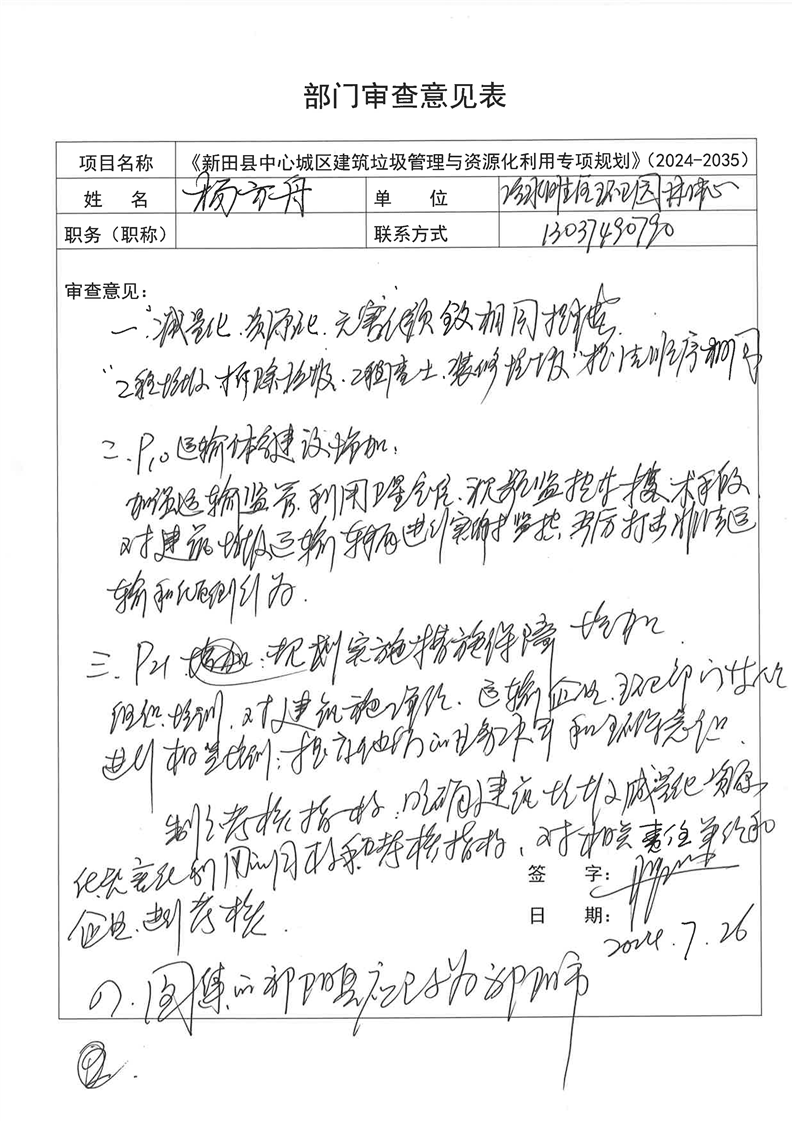 部门审查意见表
项目名称 《新田县中心城区建筑垃圾管理与资源化利用专项规划》（2024-2035）
姓 名 杨 舟 单 位 环卫园林中心
职务（职称） 联系方式 13037490790
审查意见：
一、"减量化、资源化、无害化"
"工程垃圾、拆除垃圾、工程渣土、装修垃圾"
二、P10运输体系建设增加：
加强运输监管，利用卫星定位、视频监控等技术手段，
对建筑垃圾运输车辆进行实时监控，严厉打击非法运
输和 行为。
三、P21 ：规划实施措施保障 增加
组织培训，对建筑施工单位、运输企业、环卫部门
进行相关培训，提高他们的业务水平和环保意识。
制定考核指标，明确建筑垃圾减量化、资源
化、无害化利用的目标和考核指标，对相关责任单位和
企业进行考核。
签 字：
日 期： 2024.7.26
四、图集的祁阳县应改为祁阳市